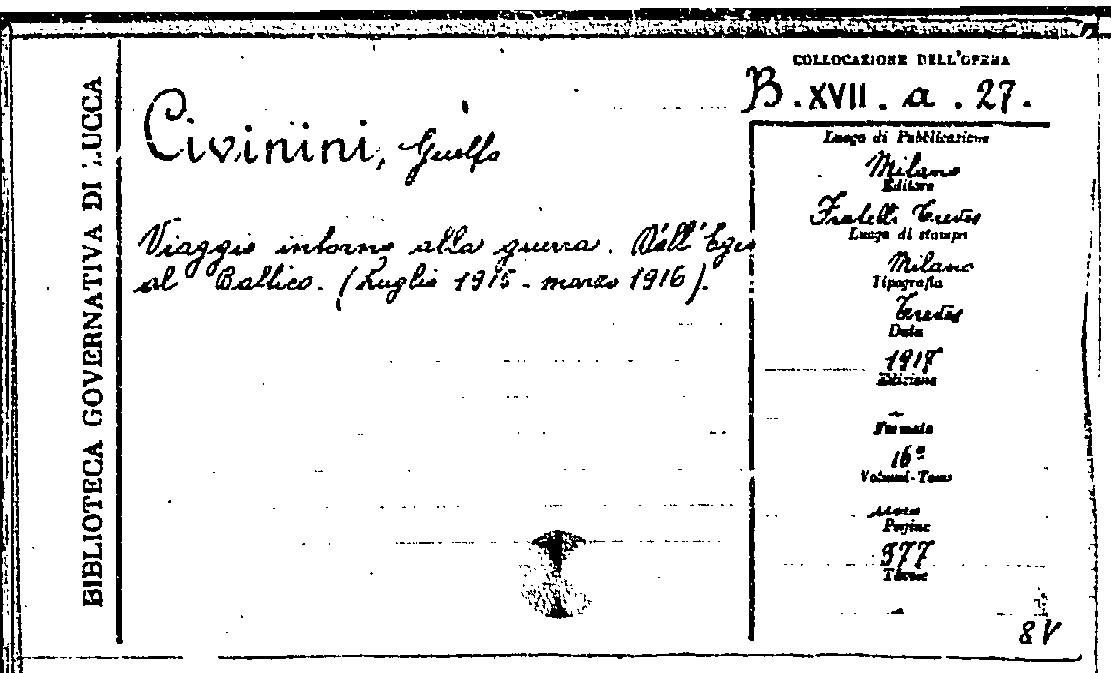 BIBLIOTECA GOVERNATIVA DI LUCCA
COLLOCAZIONE DELL'OPERA
B. XVII. a. 27.
Civinini, Guelfo
Viaggio intorno alla guerra. Dall'Egeo
al Baltico. (Luglio 1915 - marzo 1916).
Luogo di Pubblicazione
Milano
Editore
Fratelli Treves
Luogo di stampa
Milano
Tipografia
Treves
Data
1917
Edizione
Formato
16º
Volumi-Tomi
uno
Pagine
377
Tavole
8V